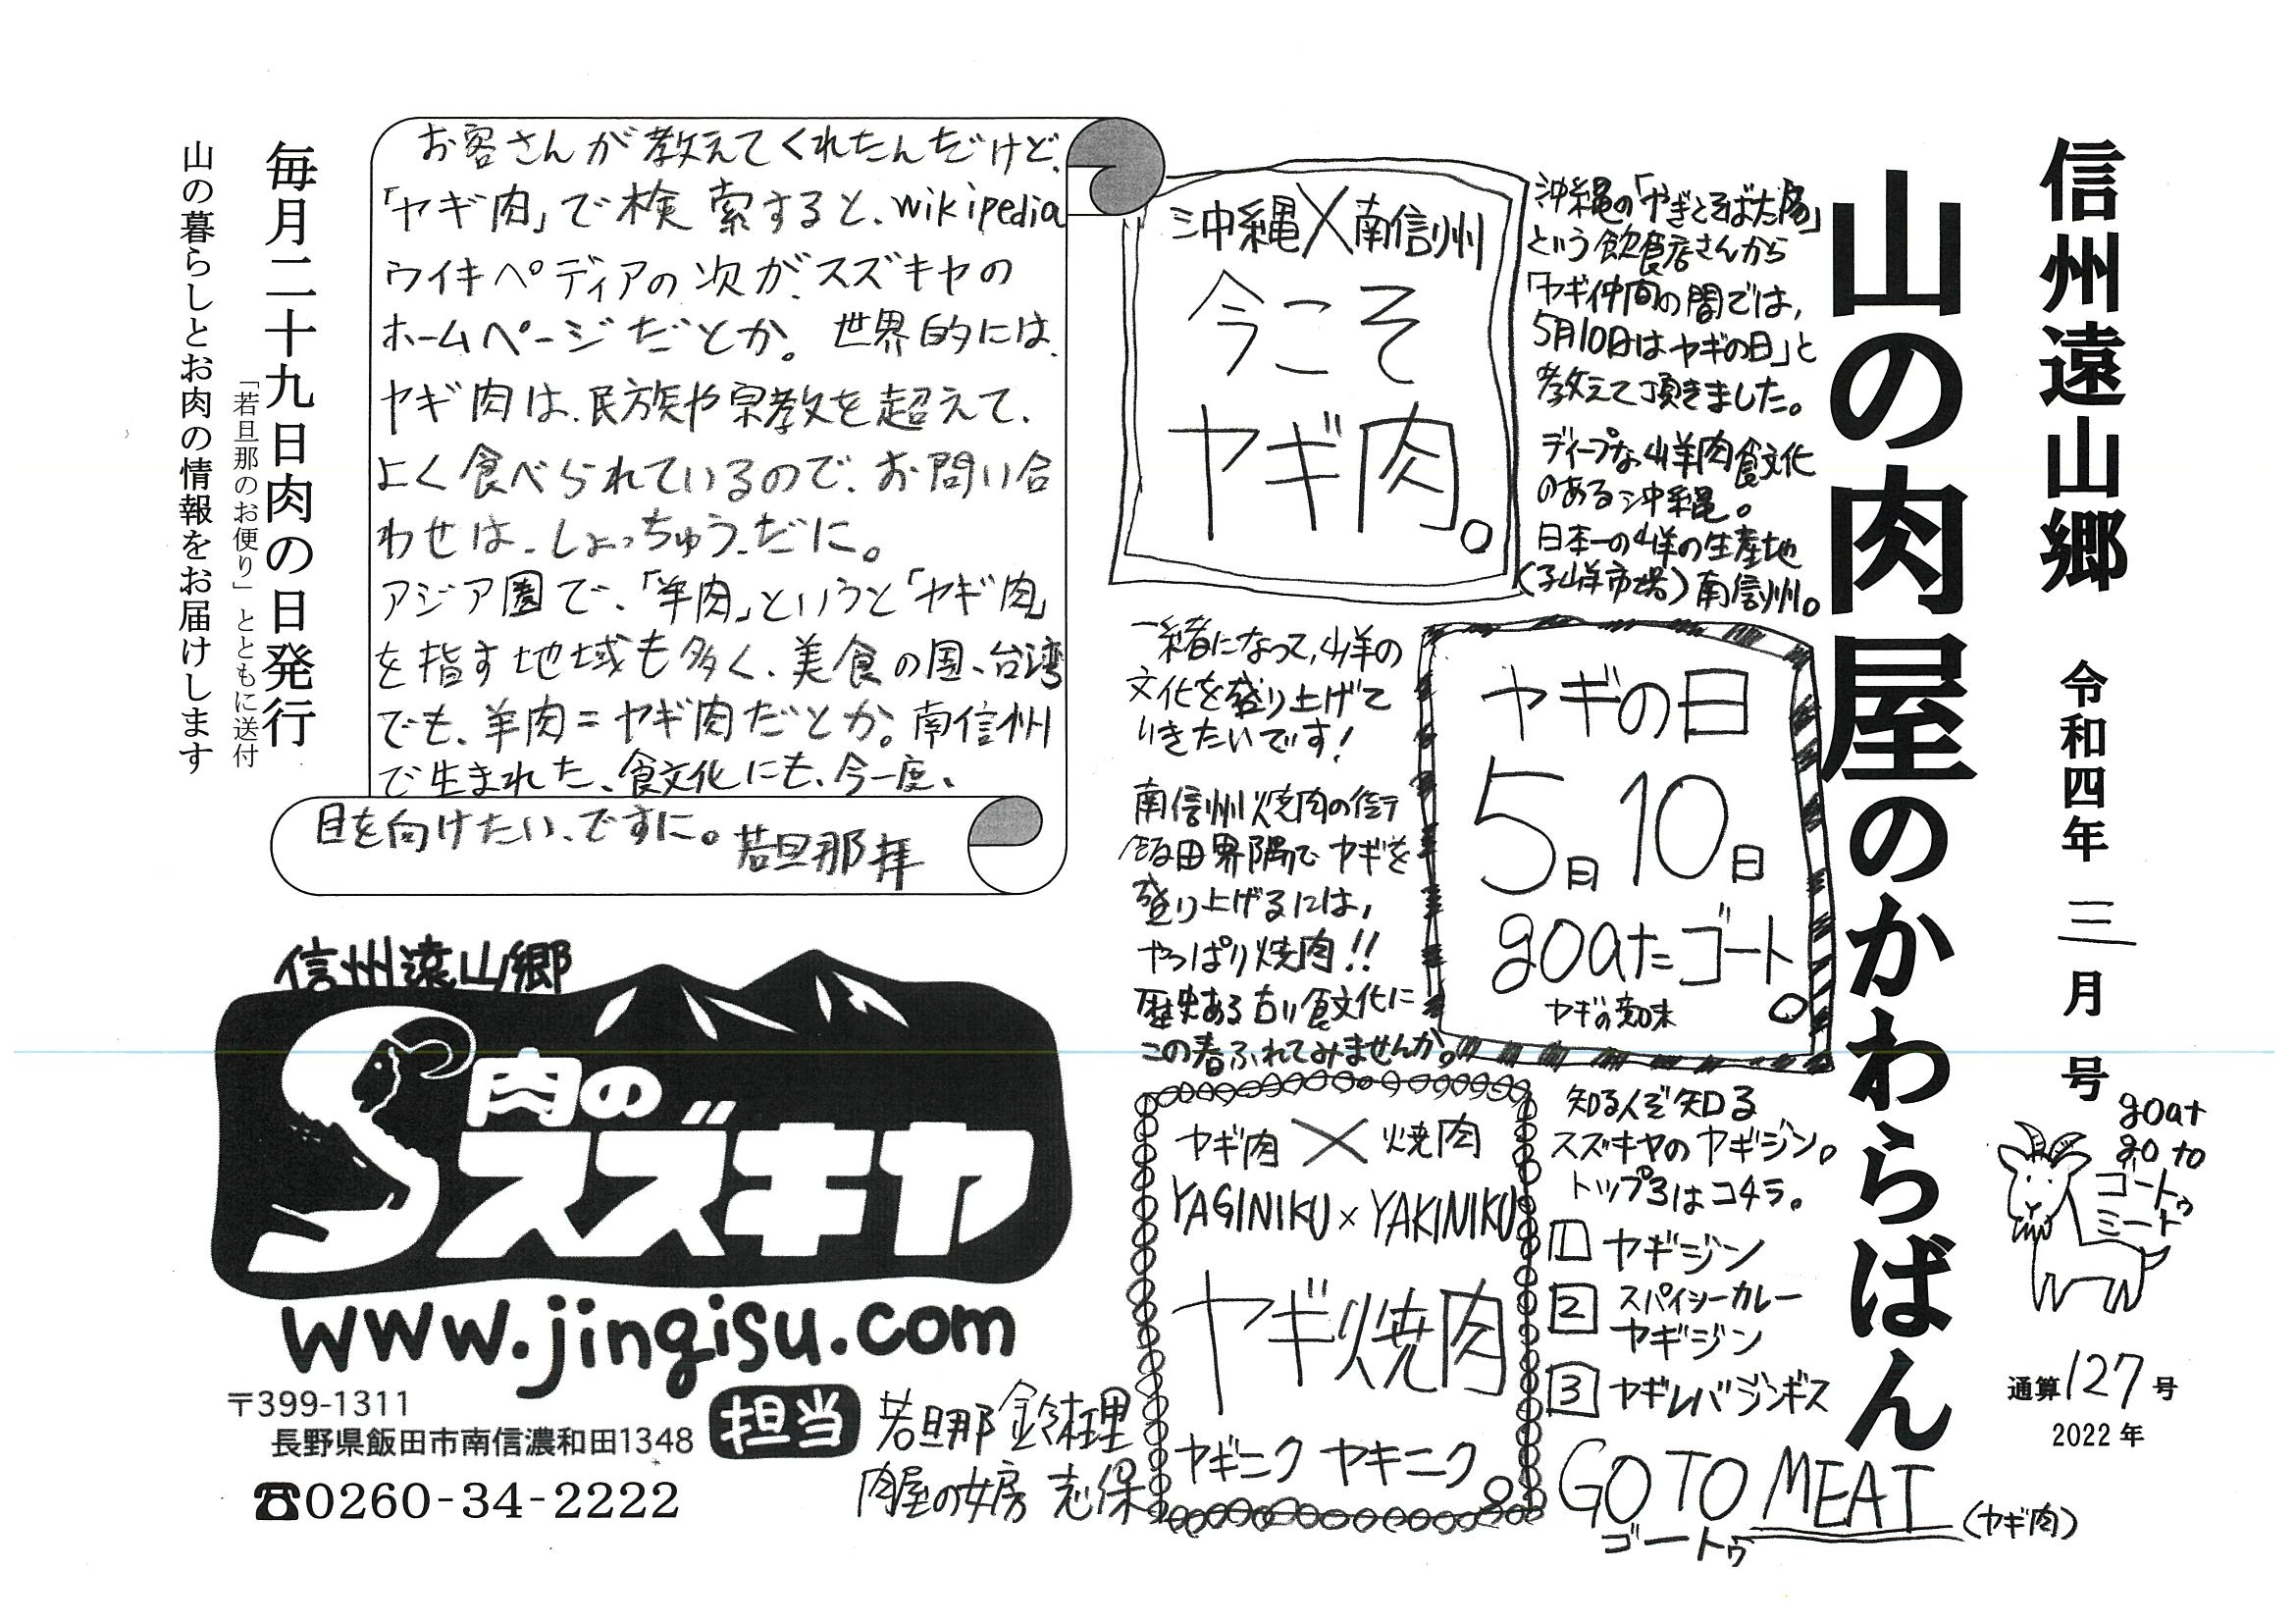 信州遠山郷 令和四年 三月号
山の肉屋のかわらばん
goat
go to
ゴートゥ
ミート
通算127号
2022年
沖縄の「やぎとそば太陽」
という飲食店さんから
「ヤギ仲間の間では、
5月10日はヤギの日」と
教えて頂きました。
ディープな山羊肉食文化
のある沖縄。
日本一の山羊の生産地
(子山羊市場)南信州。
沖縄×南信州
今こそ
ヤギ肉。
一緒になって、山羊の
文化を盛り上げて
いきたいです!
ヤギの日
5月10日
goatたゴート。
ヤギの意味
南信州焼肉の街
飯田界隈でヤギを
盛り上げるには、
やっぱり焼肉!!
歴史ある古い食文化に
この春ふれてみませんか。
ヤギ肉×焼肉
YAGINIKU×YAKINIKU
ヤギ焼肉
ヤギニク ヤキニク。
知る人ぞ知る
スズキヤのヤギジン。
トップ3はコチラ。
1 ヤギジン
2 スパイシーカレー
ヤギジン
3 ヤギレバジンギス
GO TO MEAT
ゴートゥ
(ヤギ肉)
お客さんが教えてくれたんだけど、
「ヤギ肉」で検索すると、wikipedia
ウイキペディアの次が、スズキヤの
ホームページだとか。世界的には、
ヤギ肉は、民族や宗教を超えて、
よく食べられているので、お問い合
わせは、しょっちゅう、だに。
アジア圏で、「羊肉」というと「ヤギ肉」
を指す地域も多く、美食の国、台湾
でも、羊肉=ヤギ肉だとか。南信州
で生まれた、食文化にも、今一度、
目を向けたい、ですに。若旦那 拝
毎月二十九日肉の日発行
「若旦那のお便り」とともに送付
山の暮らしとお肉の情報をお届けします
信州遠山郷
肉の
スズキヤ
www.jingisu.com
〒399-1311
長野県飯田市南信濃和田1348
☎0260-34-2222
担当
若旦那 鈴木理
肉屋の女房 志保